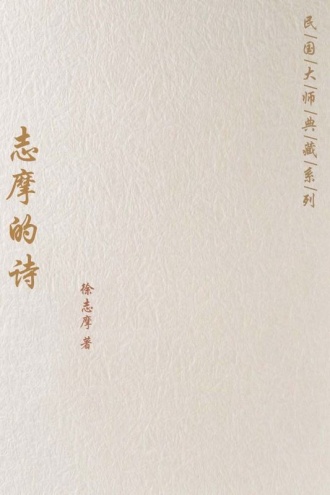 民国大师典藏系列
志摩的诗
徐志摩 著